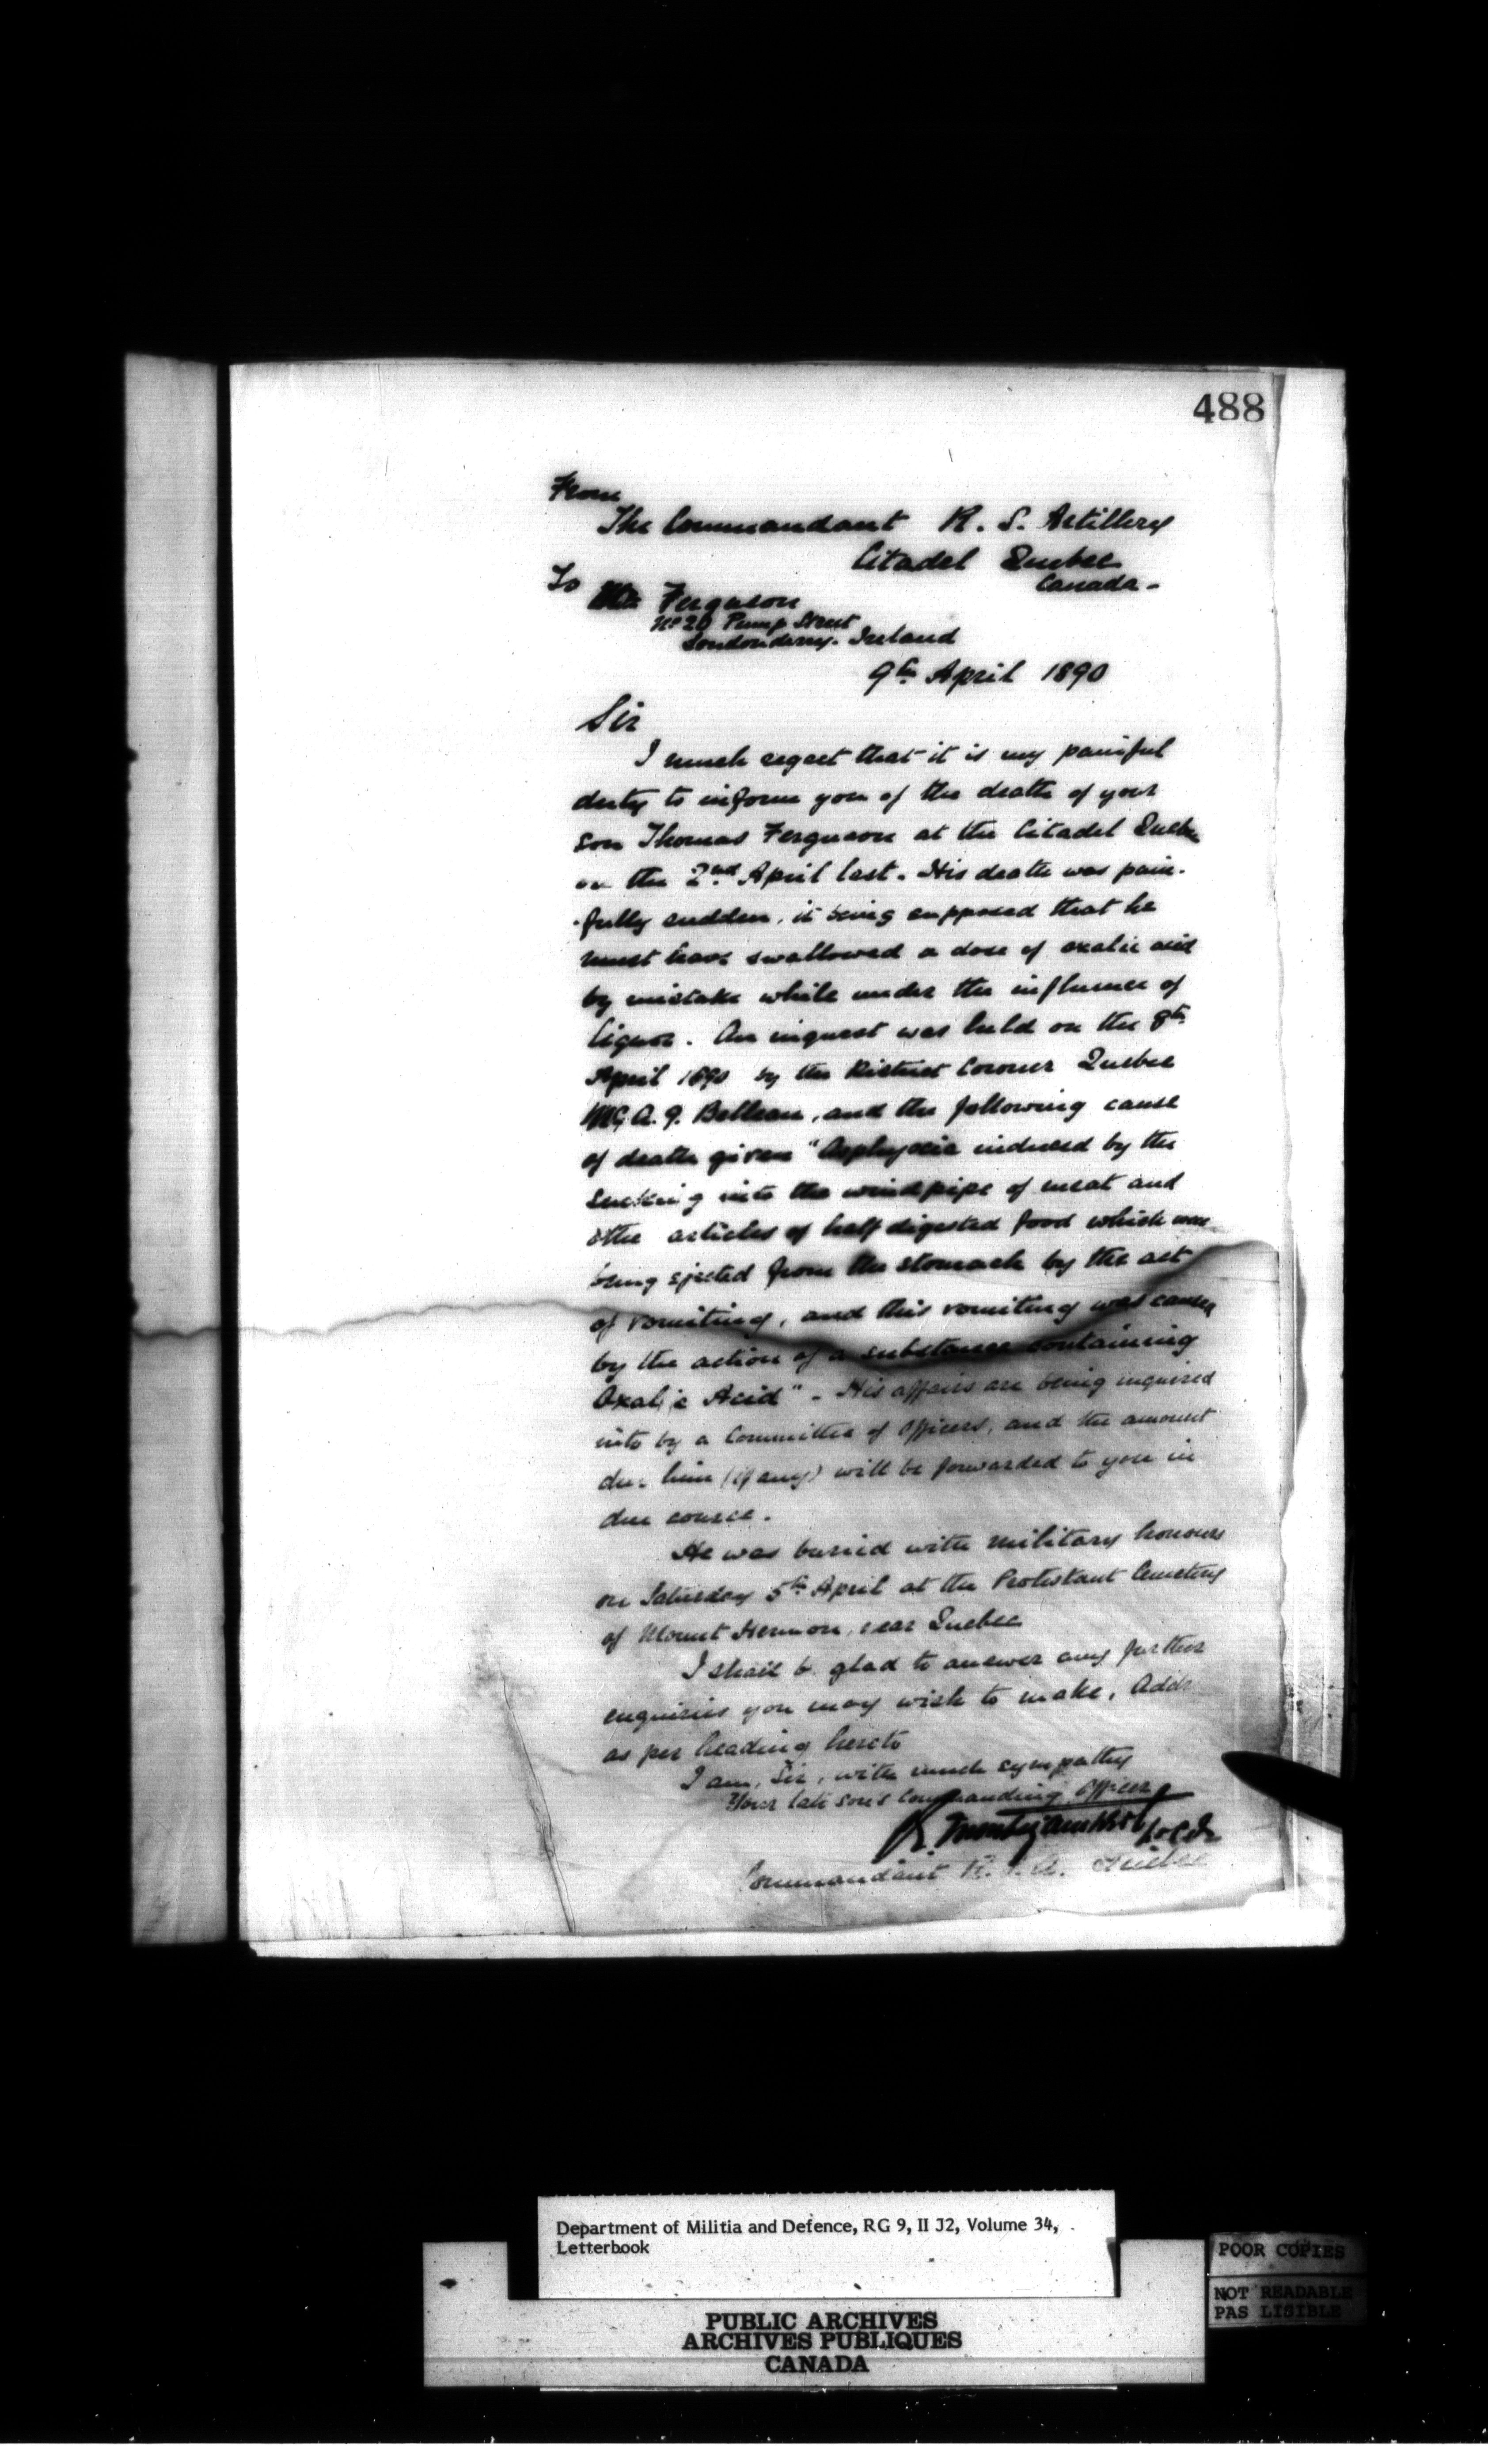 488
From
The Commandant R. S. Artillery
Citadel Quebec
Canada -
To Mr Ferguson
No 20 Pump Street
Londonderry. Ireland
9th April 1890
Sir
I much regret that it is my painful
duty to inform you of the death of your
son Thomas Ferguson at the Citadel Quebec
on the 2nd April last. His death was pain-
-fully sudden, it being supposed that he
must have swallowed a dose of oxalic acid
by mistake while under the influence of
liquor. An inquest was held on the 8th
April 1890 by the District Coroner Quebec
A. G. Belleau, and the following cause
of death given "Asphyxia induced by the
sucking into the windpipe of meat and
other articles of half digested food which was
being ejected from the stomach by the act
of vomiting, and this vomiting was caused
by the action of a substance containing
Oxalic Acid" - His affairs are being inquired
into by a Committee of Officers, and the amount
due him (if any) will be forwarded to you in
due course.
He was buried with military honours
on Saturday 5th April at the Protestant Cemetery
of Mount Hermon, near Quebec
I shall be glad to answer any further
enquiries you may wish to make, Addr
as per heading hereto
I am, Sir, with much sympathy
Your late son's Commanding Officer
Commandant R. S. A. Quebec
Department of Militia and Defence, RG 9, II J2, Volume 34,
Letterbook
POOR COPIES
NOT READABLE
PAS LISIBLE
PUBLIC ARCHIVES
ARCHIVES PUBLIQUES
CANADA